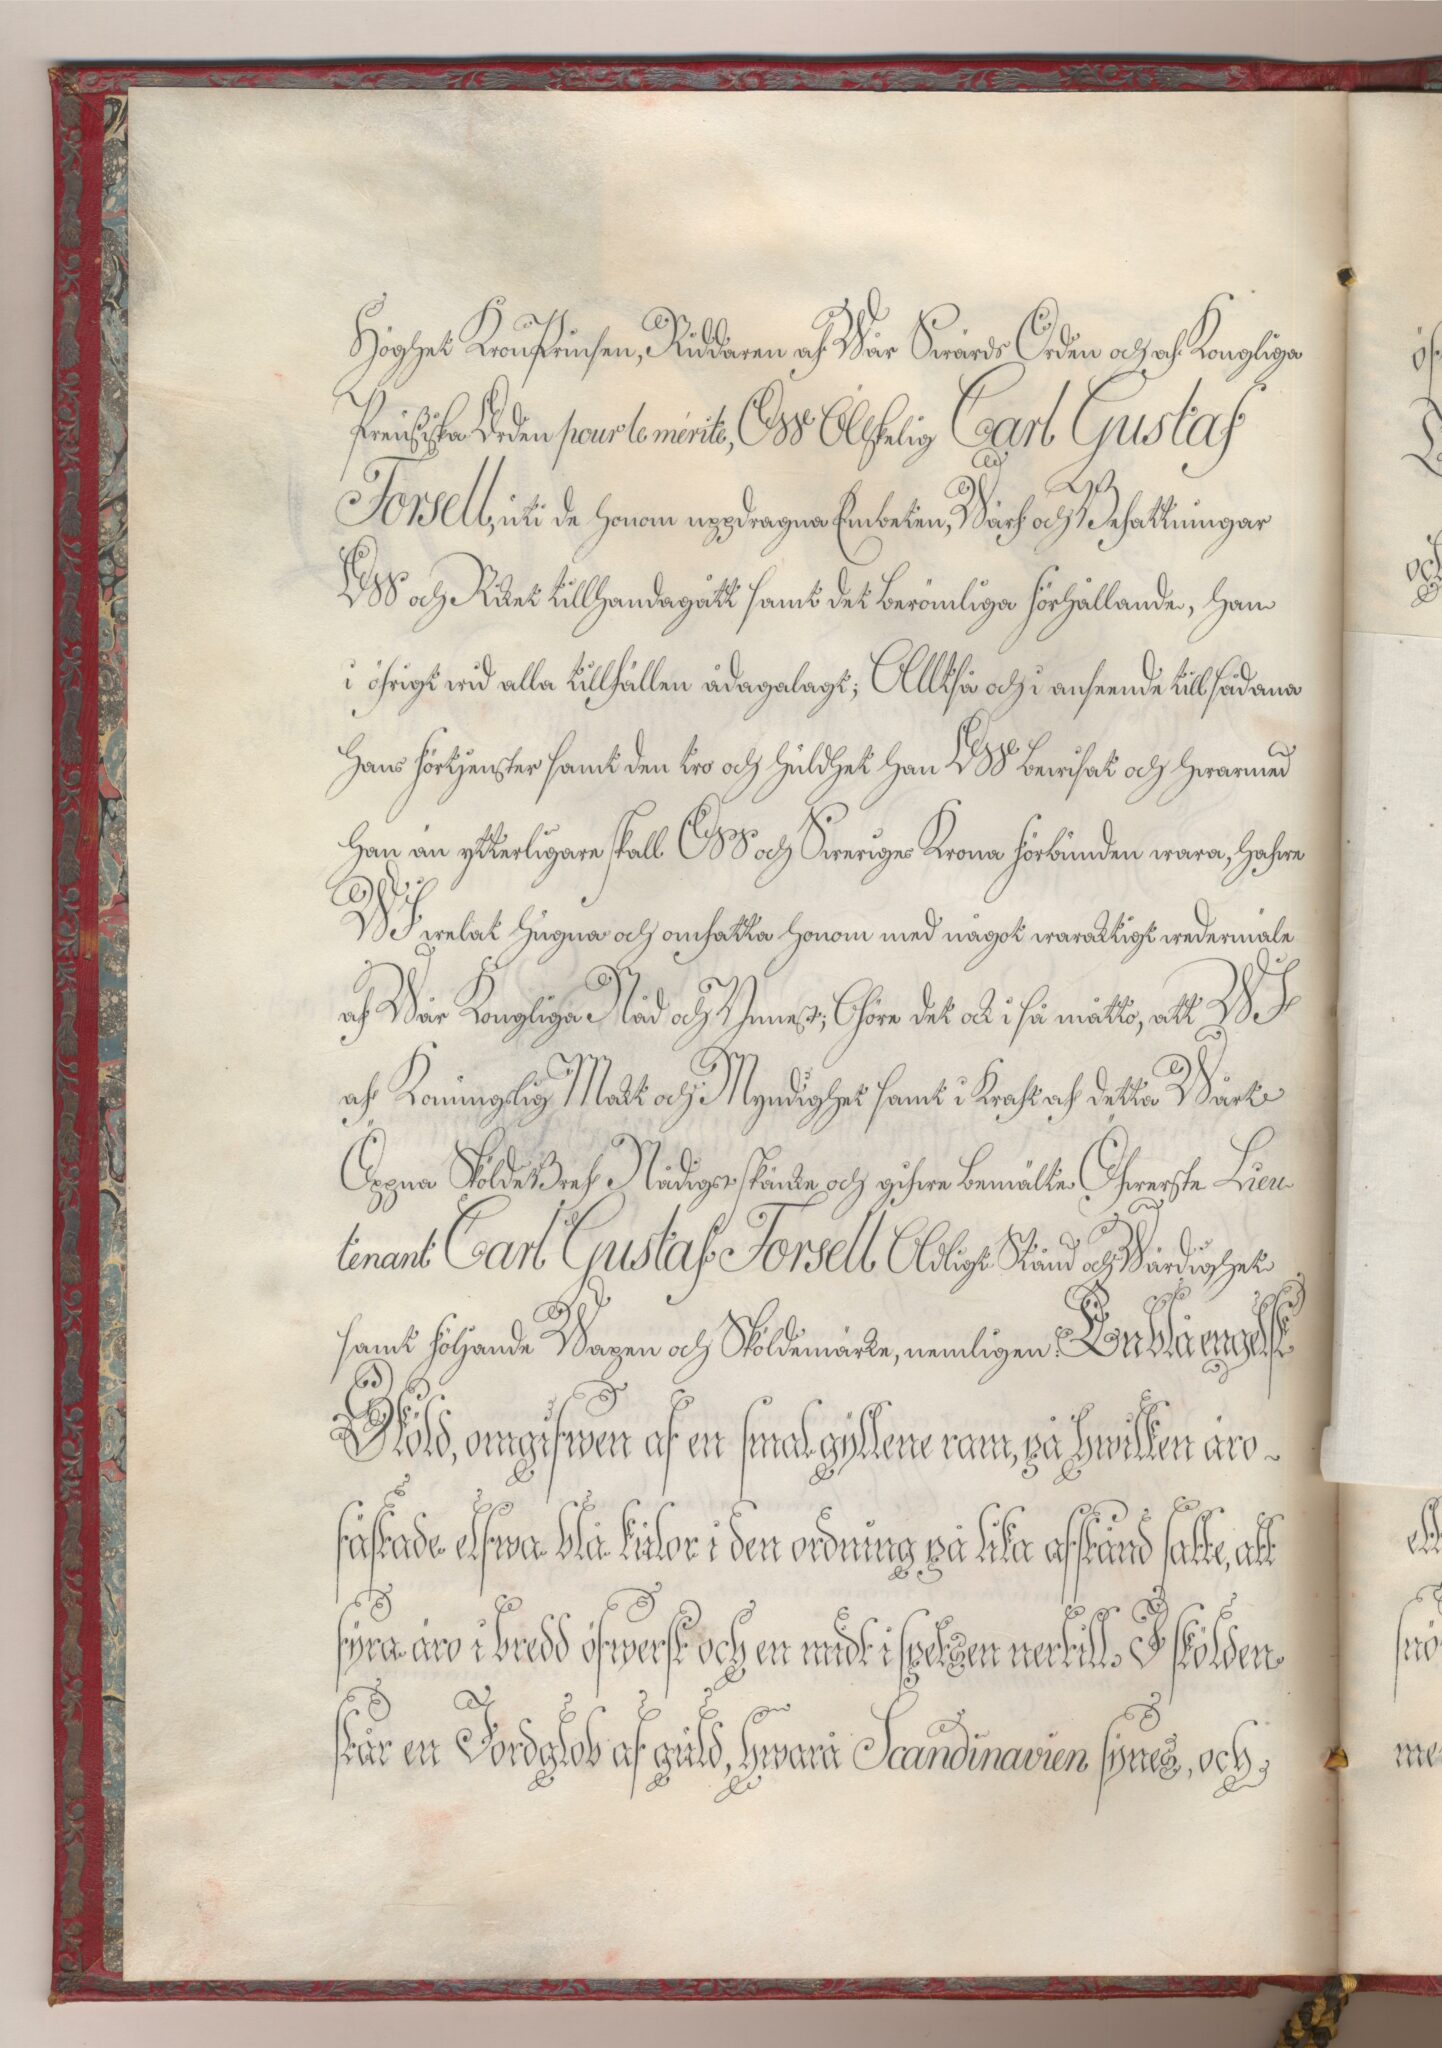 Höghet KronPrinsen, Riddaren af Wår Swärds Orden och af Kongliga
Preussiska Orden pour le mérite, Oss Älskelig Carl Gustaf
Forsell, uti de honom uppdragna Embeten, Wärf och Befattningar
Oss och Riket tillhandagått samt det berömliga förhållande, han
i öfrigt wid alla tillfällen ådagalagt; Alltså och i anseende till sådana
hans förtjenster samt den tro och huldhet han Oss bewisat och hwarmed
han än ytterligare skall Oss och Sweriges Krona förbunden wara, hafwe
WJ welat hugna och omfatta honom med något waraktigt wedermäle
af Wår Kongliga Nåd och Ynnest; Göre det ock i så måtto, att WJ
af Konungslig Makt och Myndighet samt i Kraft af detta Wårt
Öppna SköldeBref Nådigst skänke och gifwe bemälte Öfwerste Lieu-
tenant Carl Gustaf Forsell Adligt Stånd och Wärdighet
samt följande Wapen och Sköldemärke, nemligen: En blå engelsk
Sköld, omgifwen af en smal gyllene ram, på hwilken äro
fästade elfwa blå kulor i den ordning på lika afstånd satte, att
fyra äro i bredd öfwerst och en midt i spetsen nertill. I skölden
står en Jordglob af guld, hwarå Scandinavien synes, och